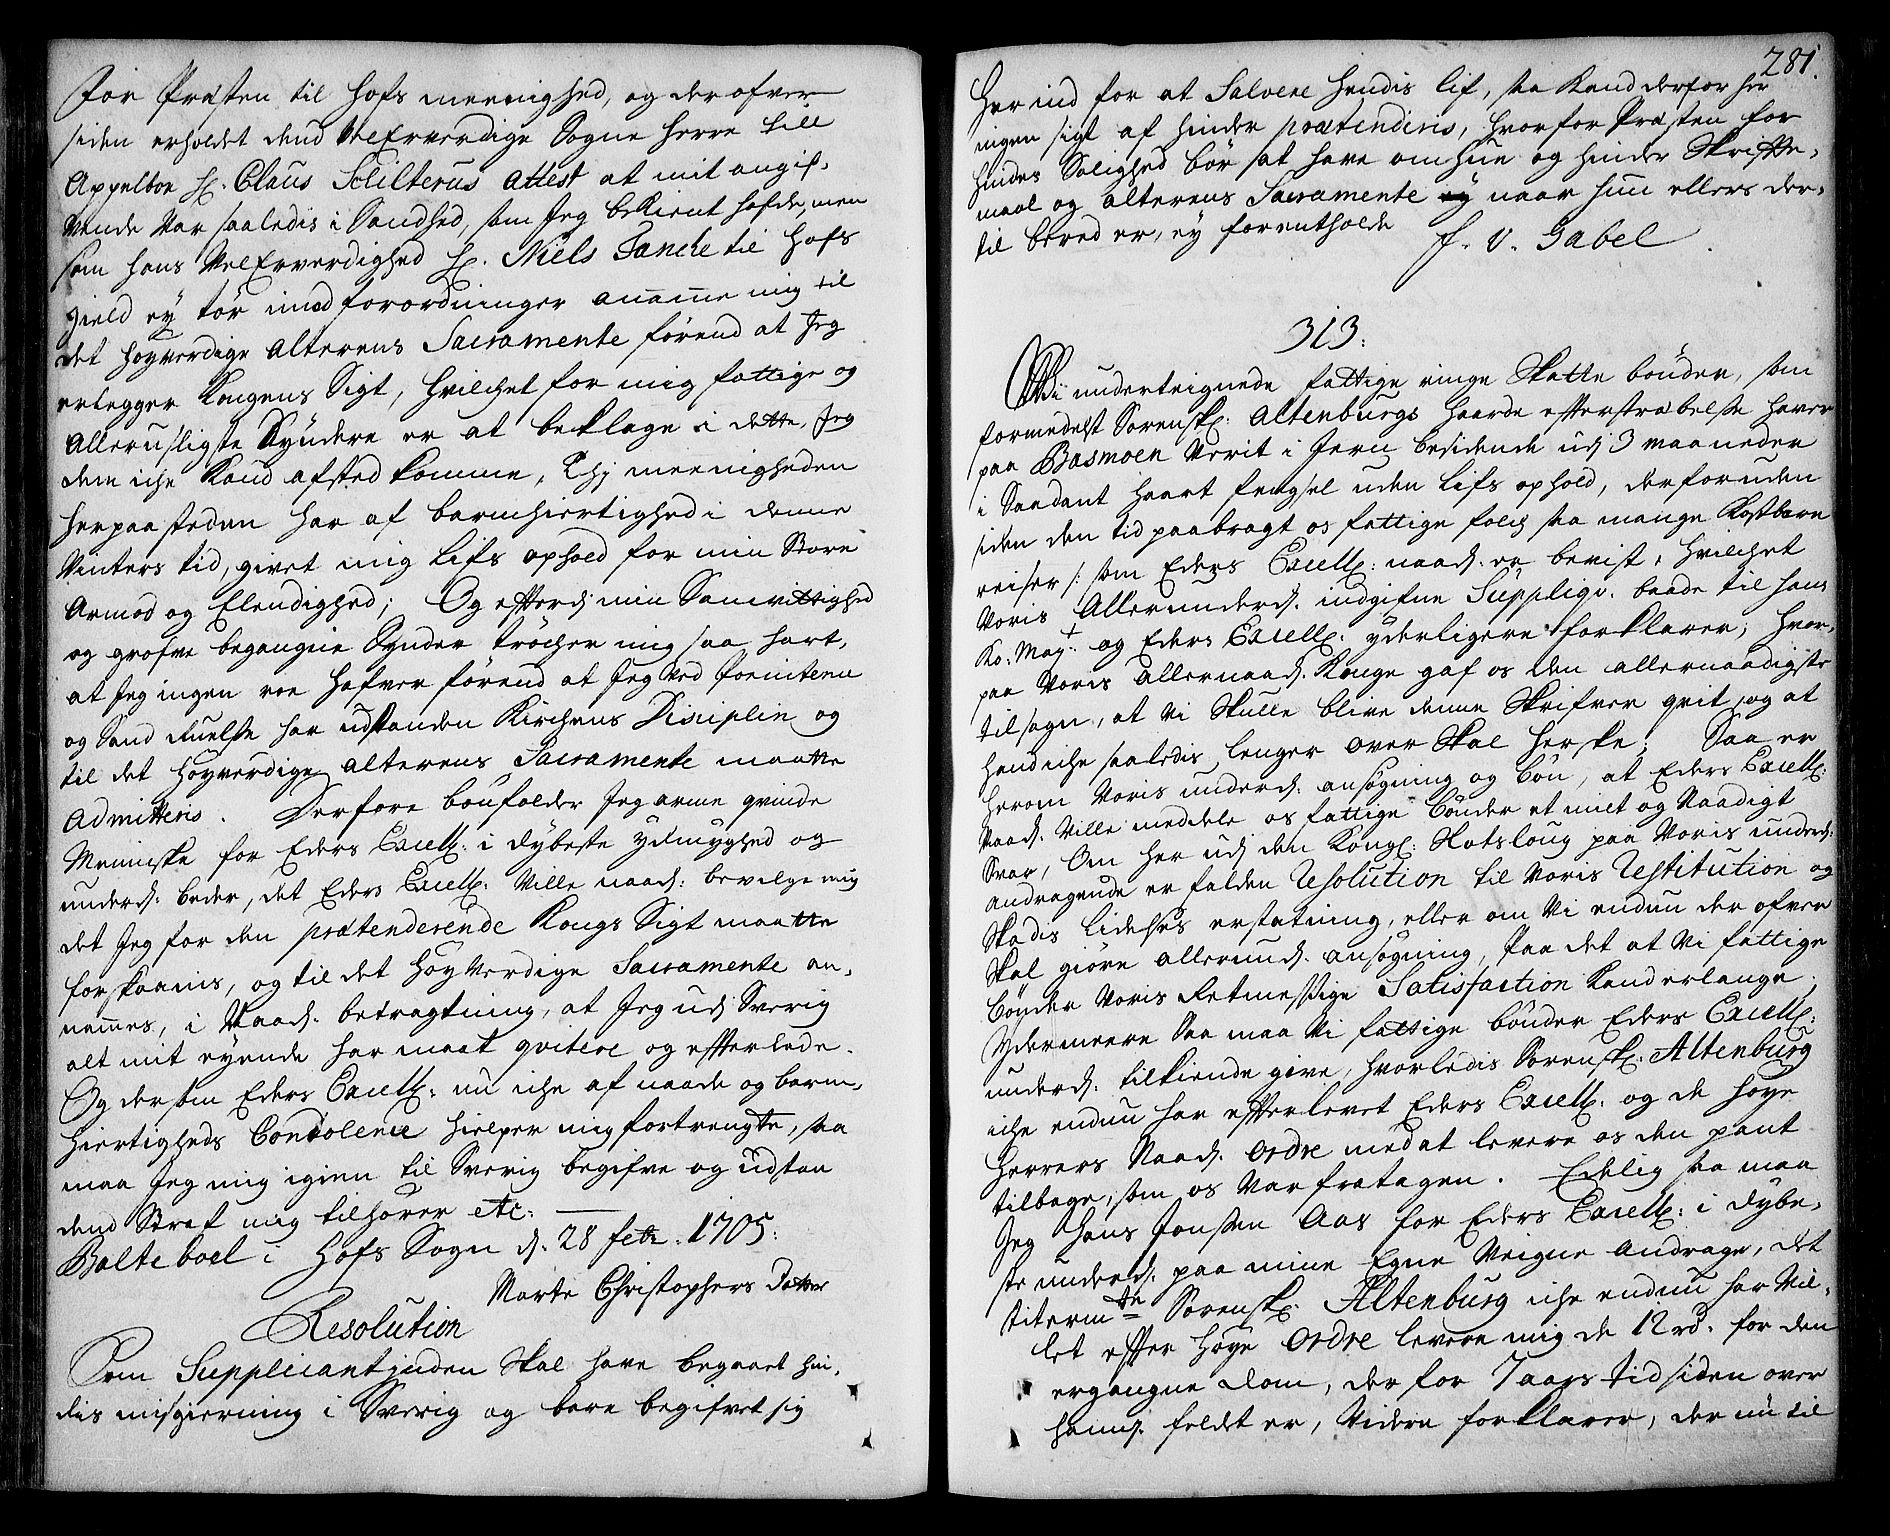 for Præsten til Hofs meenighed, og derofver
siden erholdet dend VelErverdige Sogne Herre till
Appelboe H. Claus Schilterus attest at mit angif-
vende var saaledis i Sandhed, som Jeg bekient hafde, men
som hans VelErverdighed H. Niels Tanche til Hofs
gield ey tør imod forordninger anamme mig til
det høyverdige alterens Sacramente førend at Jeg
erlegger Kongens Sigt, hvilchet for mig fattige og
allerusligste Syndere er at beklage i dette, Jeg
dem iche kand afsted komme, Thj meenigheden
herpaa steden har af barmhiertighed i denne
Vinters tid, givet mig Lifs ophold for min Store
Armod og Elendighed; Og efterdj min Samvittighed
og grofve begangne Synder trøcher mig saa hart,
at Jeg ingen roe hafver førend at Jeg ved Poenitence
og Sand Ruelse har udstanden Kirchens Disciplin og
til det høyverdige alterens Sacramente maatte
admitteris. Derfore bønfalder Jeg arme qvinde
Menniske for Eders Excell: i dybeste ydmyghed og
underd: beder, det Eders Excell: Ville naad: bevilge mig
det Jeg for den prætenderende Kongs Sigt maatte
forskaanis, og til det Høyverdige Sacramente an-
nemmes, i Naad. betragtning, at Jeg udj Sverig
alt mit eyende har maat qvitere og efterlade.
Og dersom Eders Excell: nu iche af naade og barm-
hiertigheds Condolence hielper mig fortrengte, saa
maa Jeg mig igien til Sverig begifve og udstaa
dend Straf mig tilhører etc:
Balteboel i Hofs Sogn d. 28 febr. 1705.
Marte Christophers Datter
Resolution
Som Supplicantinden Skal have begaaet hin-
dis misgierning i Sverig og bare begifvet sig
281.
Her ind for at Salvere hendis lif, saa kand derfor her
ingen sigt af hinder prætenderis, hvorfor Præsten for
hindes Salighed bør at have omhue og hinder Skrifte-
maal og alterens Sacramente naar hun ellers der-
til bered er, ey forentholde
F. V. Gabel
313.
Wi underteignede fattige ringe Skatte bønder, som
formedelst Sorenskr: Altenburgs haarde efterstræbelse haver
paa Basmoen Verit i Jern besidende udj 3 maaneder
i Saadant haart fengsel uden Lifs ophold, derforuden
siden den tid paabragt os fattige folch saa mange Kostbare
reiser /: som Eders Excell: naad. er bevist, hvilchet
Voris allerunderd. indgifne Suppliqv. baade til hans
Ko: May:t og Eders Excell: yderligere forklarer; hvor-
paa Voris allernaad. Konge gaf os den allernaadigste
tilsagn, at Vi Skulle blive denne Skrifver qvit, og at
hand iche saaledis lenger over Skal herske. Saa er
herom Voris underd. ansøgning og bøn, at Eders Excell:
Naad. Ville meddele os fattige bønder et mict og Naadigt
Svar, Om her udj den Kongl: Slotsloug paa Voris underd:
andragende er falden Resolution til Voris Restitution og
Skadis Lidelses erstatning, eller om Vi endnu der ofver
Skal giøre allerund. ansøgning, Paa det at Vi fattige
bønder Voris Retmessige Satisfaction kand erlange.
Ydermeere Saa maa Vi fattige bønder Eders Excell:
underd. tilkiende give, hvorledis Sorenskr: Altenburg
iche endnu har efterlevet Eders Excell: og de høye
Herrers Naad. ordre med at levere os den pant
tilbage, som os Var fratagen. Edelig saa maa
Jeg Hans Jonssen Aas for Eders Excell: i dybe-
ste underd. paa mine Egne Veigne andrage, det
titermte Sorenskr: Altenburg iche endnu har Vil-
let efter høye ordre levere mig de 12 rd. for den
ergangne Dom, der for 7 aars tid siden over
hannem feldet er, Videre forklarer, der nu til